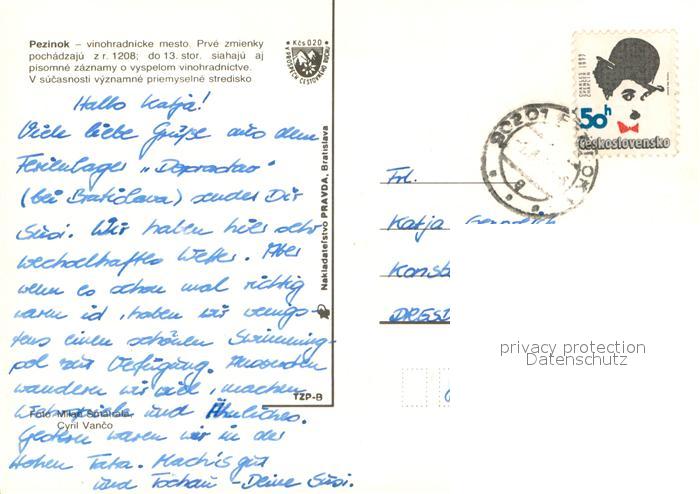 Pezinok – vinohradnícke mesto. Prvé zmienky
pochádzajú z r. 1208; do 13. stor. siahajú aj
písomné záznamy o vyspelom vinohradníctve.
V súčasnosti významné priemyselné stredisko
Kčs 0,20
V PROSPECH CESTOVNÉHO RUCHU
Hallo Katja!
Viele liebe Grüße aus dem
Ferienlager
(bei Bratislava) sendet Dir
Susi. Wir haben hier sehr
wechselhaftes Wetter. Aber
wenn es schon mal richtig
warm ist, haben wir wenigs-
tens einen schönen Swimming-
pol zur Verfügung. Ansonsten
wandern wir viel, machen
und Ähnliches.
Gestern waren wir in der
Hohen Tatra. Mach's gut
und Tschau – Deine Susi.
Foto: Milan
Cyril Vančo
Nakladateľstvo PRAVDA, Bratislava
TZP-B
CHARLES SPENCER CHAPLIN
50h
Československo
90201
Frl.
Katja
Konsta
DRESD
privacy protection
Datenschutz